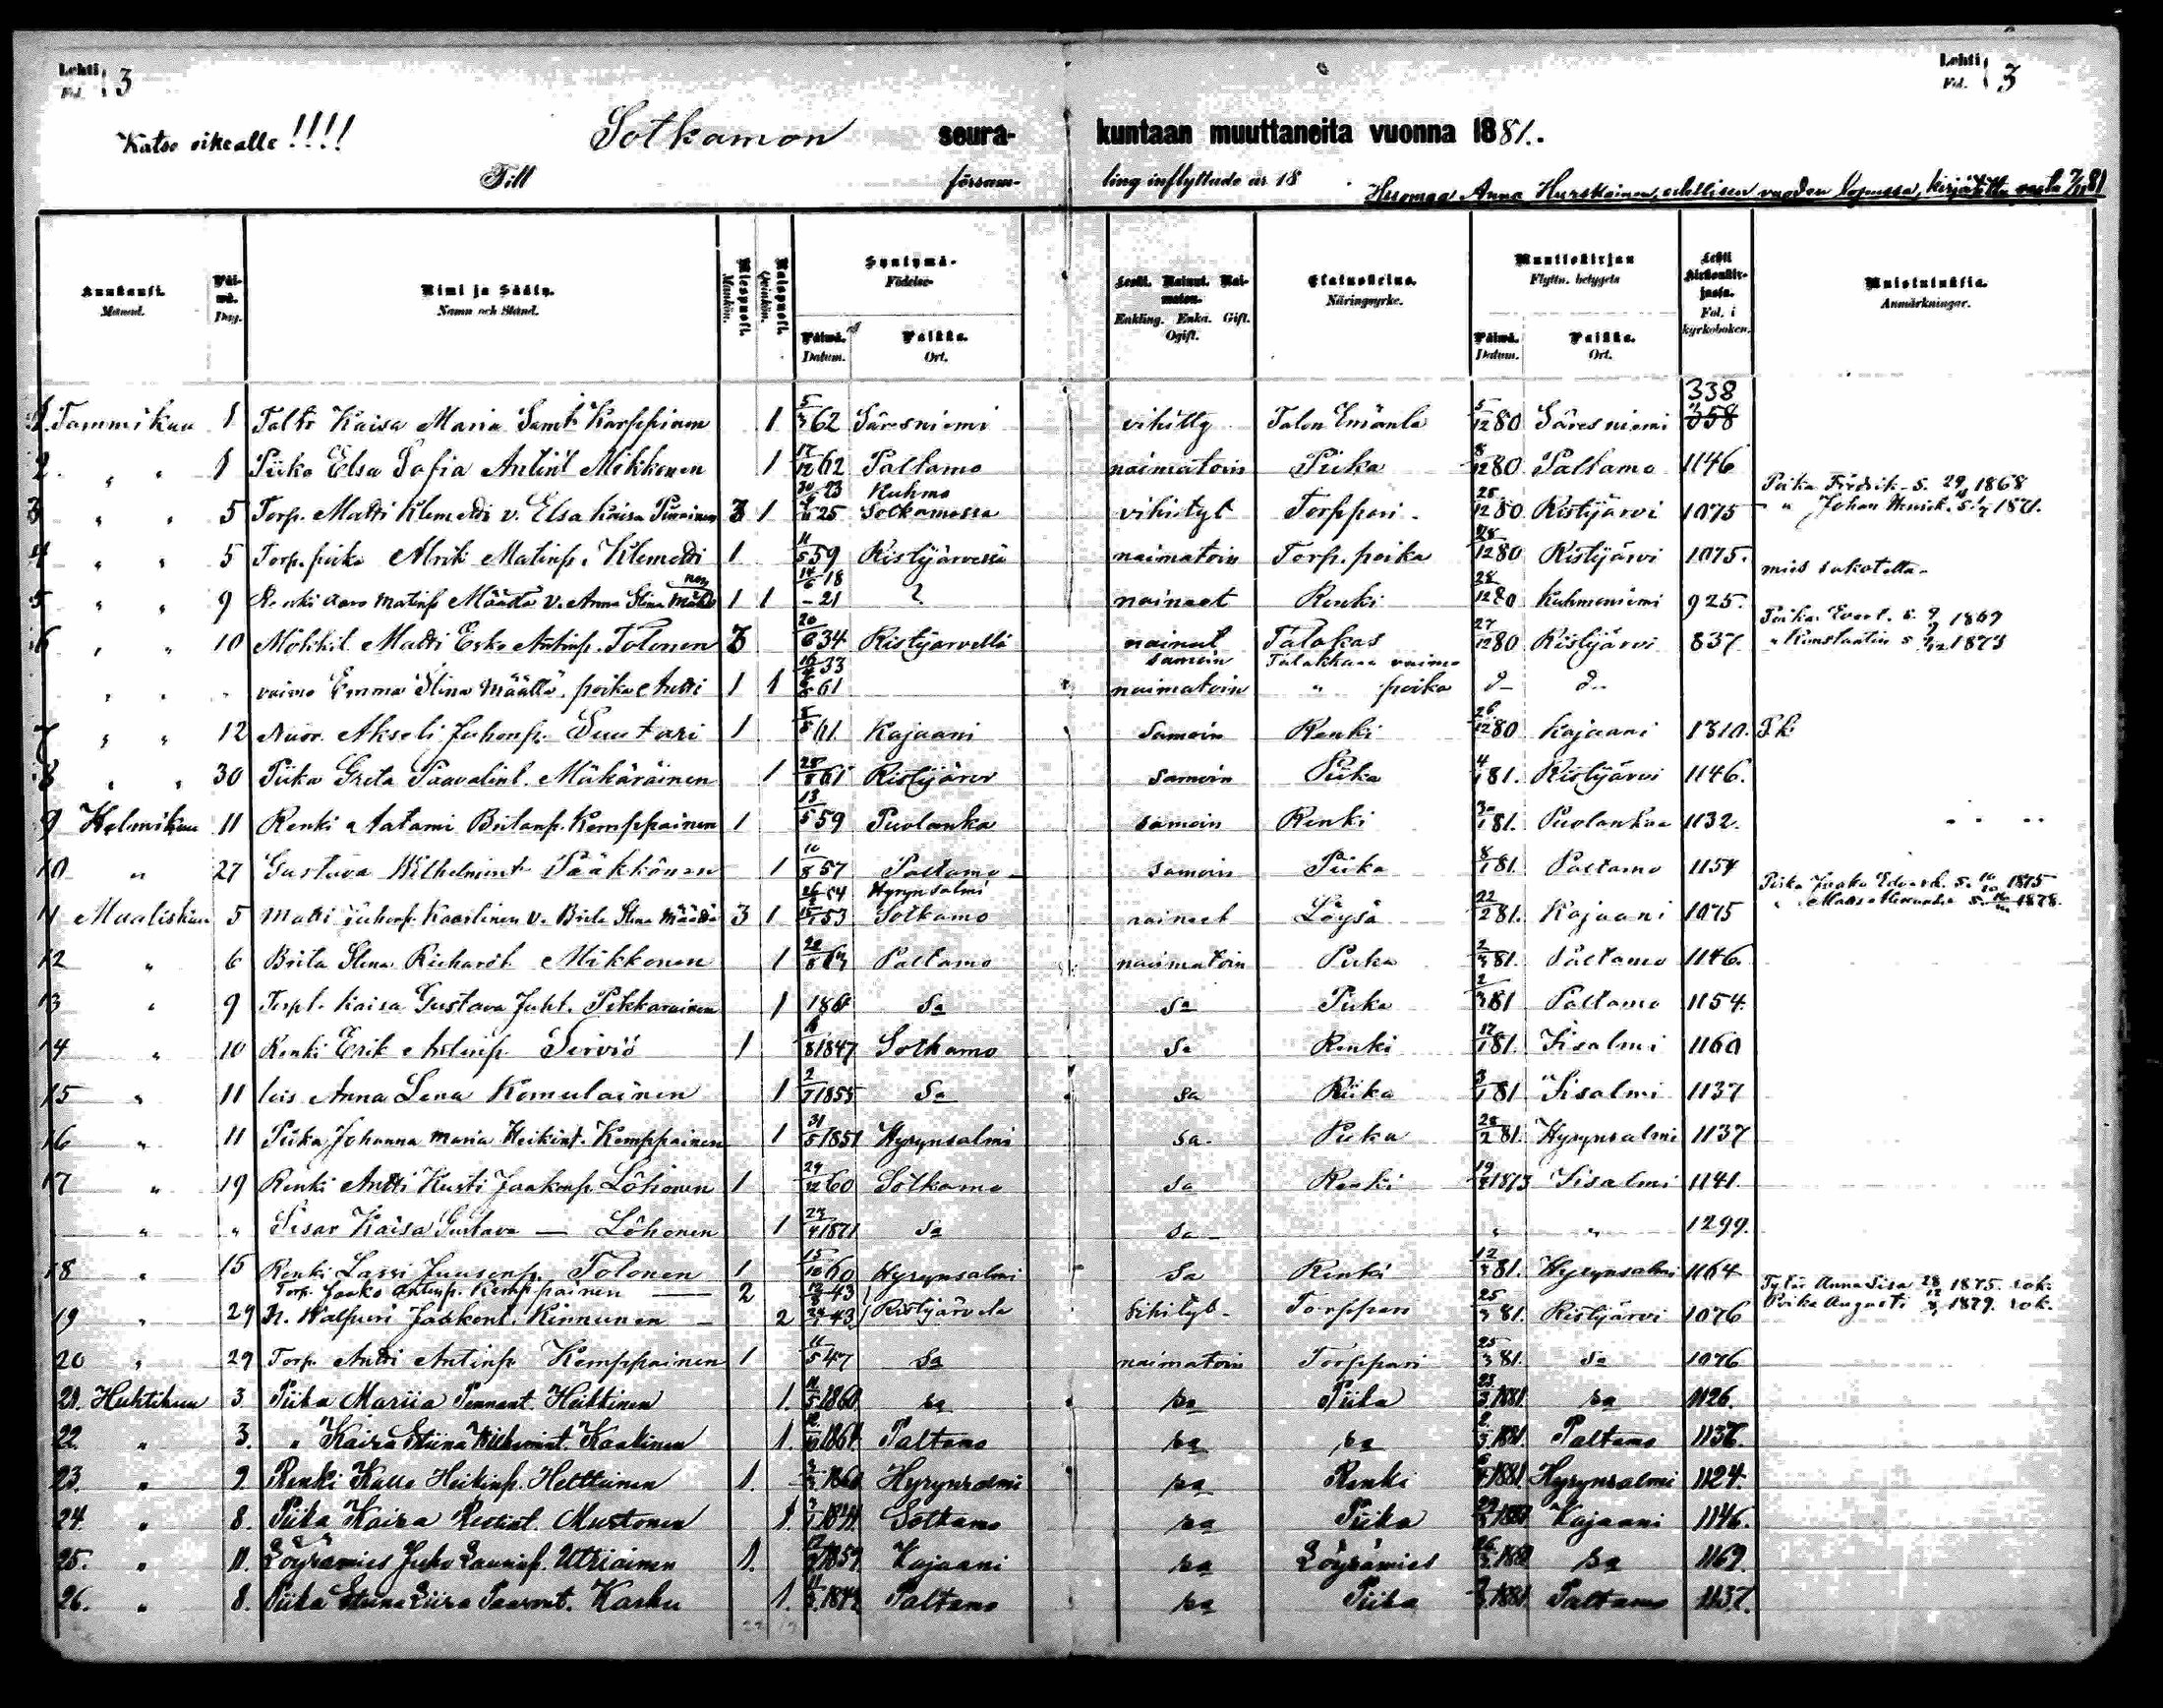 Lehti Fol. 3
Lehti Fol. 3
Katso oikealle !!!!
Sotkamon seura- kuntaan muuttaneita vuonna 1881.
Till försam- ling inflyttade år 18
Huomaa Anna Hurskainen, edellisen vuoden lopussa, kirjattu vasta 81
Kuukausi. Månad.
Päivä. Dag.
Nimi ja Sääty. Namn och Stånd.
Miespuoli. Mankön.
Naispuoli. Qvinkön.
Syntymä- Födelse-
Päivä. Datum. Paikka. Ort.
Leski. Nainut. Naimaton. Enkling. Enka. Gift. Ogift.
Elatuskeino. Näringsyrke.
Muuttokirjan Flyttn. betygets
Päivä. Datum. Paikka. Ort.
Lehti kirkonkirjassa. Fol. i kyrkoboken.
Muistutuksia. Anmärkningar.
338
1. Tammikuu 1 Talt: Kaisa Maria Karppinen 1 5/3 62 Säresniemi vihitty Talon Emäntä 5/12 80 Säresniemi 358
2. " " 1 Piika Elsa Sofia Antint. Mikkonen 1 17/12 62 Paltamo naimatoin Piika 8/12 80 Paltamo 1146
30/ 23 Kuhmo
Poika Fredrik s. 1868
3 " " 5 Torp. Matti Klemetti v. Elsa Kaisa 3 1 25 Sotkamossa vihityt Torppari 28/12 80 Ristijärvi 1075 " Johan Henrik s. 1871.
4 " " 5 Torp. poika Abrik Matinp. Klemetti 1 11/5 59 Ristijärvellä naimatoin Torp. poika 28/12 80 Ristijärvi 1075.
14/6 18 mies sakotettu
5 " " 9 Renki Aaro Matinp. Määttä v. Anna Stina 1 1 - 21 ? naineet Renki 28/12 80 Kuhmoniemi 925.
Poika Evert s. 1869
6 " " 10 Mökkil. Matti Erke Antinp. Tolonen 3 20/6 34 Ristijärvellä nainut Talokas 27/12 80 Ristijärvi 837 " Konstantin s. 1873
33 samoin Talokkaan vaimo
" " " vaimo Emma Stina Määttä, poika Antti 1 1 61 naimatoin " poika d- d-
7 " " 12 Nuor. Akseli Juhonp. Suutari 1 8/5 61. Kajaani samoin Renki 26/12 80 Kajaani 1310.
8 " " 30 Piika Greta Paavalint. Mäkäräinen 1 61 Ristijärvi samoin Piika 4/1 81. Ristijärvi 1146.
9 Helmikuu 11 Renki Aatami Kemppainen 1 13/5 59 Puolanka samoin Renki 81. Puolankaa 1132.
10 " 27 Gustava Wilhelmint. Pääkkönen 1 10/8 57 Paltamo samoin Piika 8/1 81. Paltamo 1154
26/ 54 Hyrynsalmi
Poika Jaako Edvard s. 1875
11 Maaliskuu 5 Matti Juhonp. Kaarlinen v. Brita Stina Määttä 3 1 53 Sotkamo naineet Löysä 22/2 81. Kajaani 1075 s. 1878.
12 " 6 Brita Stina Richardt. Mikkonen 1 63 Paltamo naimatoin Piika 2/3 81. Paltamo 1146.
13 " 9 Torpt. Kaisa Gustava Juht. Pikkarainen 1 1861 Sa Sa Piika 2/3 81 Paltamo 1154.
14 " 10 Renki Erik Antinp. Sirviö 1 8/ 1847 Sotkamo Sa Renki 17/1 81. Iisalmi 1160
15 " 11 Anna Lena Komulainen 1 1855 Sa Sa Piika 3/1 81 Iisalmi 1137
16 " 11 Piika Johanna Maria Heikint. Kemppainen 1 31/5 1851 Hyrynsalmi Sa Piika 28/2 81. Hyrynsalmi 1137
17 " 19 Renki Antti Kusti Jaakonp. Löhonen 1 29/12 60 Sotkamo Sa Renki 19/ 1873 Iisalmi 1141.
" " Sisar Kaisa Gustava — Löhonen 1 23/4 1871 Sa Sa " " 1299.
18 " 15 Renki Lassi Juusonp. Tolonen 1 15/10 60 Hyrynsalmi Sa Renki 12/3 81. Hyrynsalmi 1164
Torp. Jaako Antinp. Kemppainen 2 43 Tytär Anna Liisa 1875. rok.
19 " 29 v. Walpuri Jaakont. Kinnunen 2 43 Ristijärvelä vihityt Torppari 25/3 81. Ristijärvi 1076 Poika Augusti 1879. rok.
20 " 29 Torp. Antti Antinp. Kemppainen 1 11/5 47 Sa naimatoin Torppari 25/3 81. Sa 1076
21. Huhtikuu 3 Piika Mariia Pennant. Heikkinen 1. 11/5 1860 sa sa Piika 23/3 1881. sa 1126.
22. " 3. " Kaisa Stiina Wilhemint. Kaakinen 1. 1861 Paltamo sa sa 2/3 1881. Paltamo 1136.
23. " 2. Renki Kalle Heikinp. Helttunen 1. 1860 Hyrynsalmi sa Renki 1881 Hyrynsalmi 1124.
24. " 8. Piika Kaisa Mustonen 1. 1844. Sotkamo sa Piika Kajaani 1146.
25. " 11. Löysämies Juho Laurinp. Utriainen 1. 1859. Kajaani sa Löysämies sa 1169.
26. " 8. Piika Stiina Liisa Paavont. Karhu 1. Paltamo sa Piika 1881 Paltamo 1137.